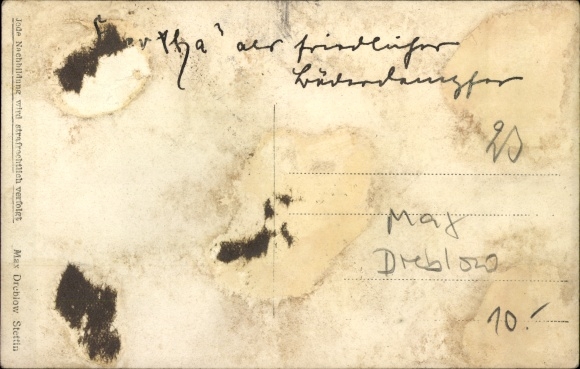 "Hertha" als friedlicher
Bäderdampfer
Max
Dreblow
10.-
Jede Nachbildung wird strafrechtlich verfolgt
Max Dreblow Stettin